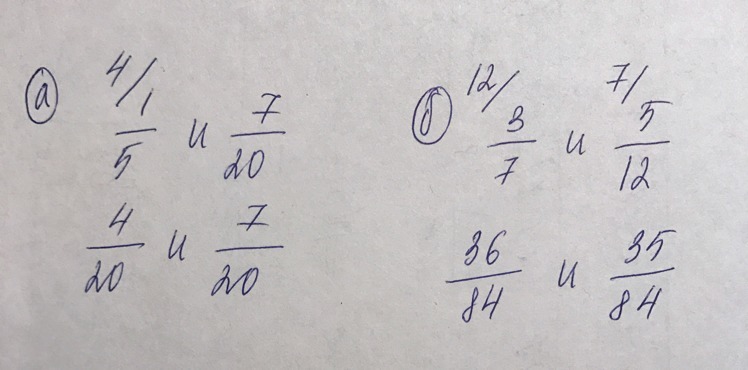 а) 4/ 1/5 и 7/20
4/20 и 7/20
б) 12/ 3/7 и 7/ 5/12
36/84 и 35/84